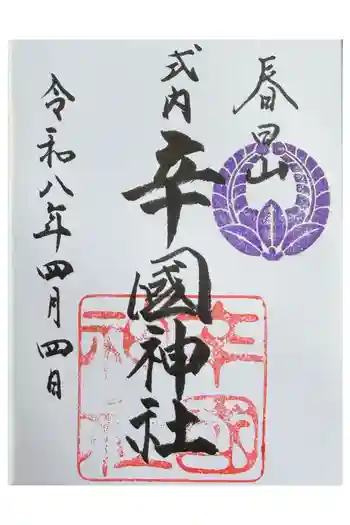 春日山
式内 辛國神社
令和八年四月四日
辛國
神社